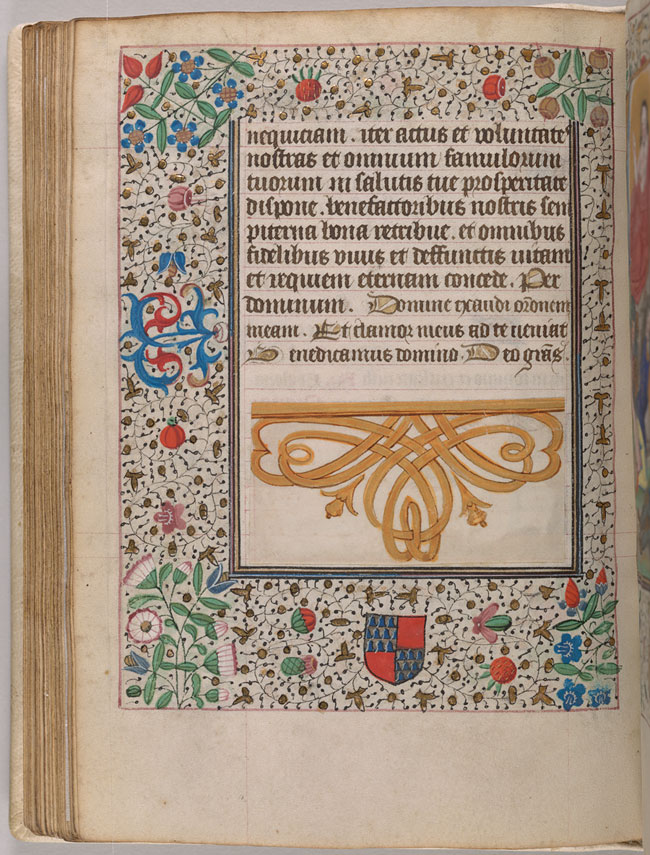 nequiciam. iter actus et voluntate
nostras et omnium famulorum
tuorum in salutis tue prosperitate
dispone. benefactoribus nostris sem
piterna bona retribue. et omnibus
fidelibus viuis et deffunctis uitam
et requiem eternam concede. Per
dominum. Domine exaudi orōnem
meam. Et clamor meus ad te ueniat
Benedicamus domino. Deo grās.